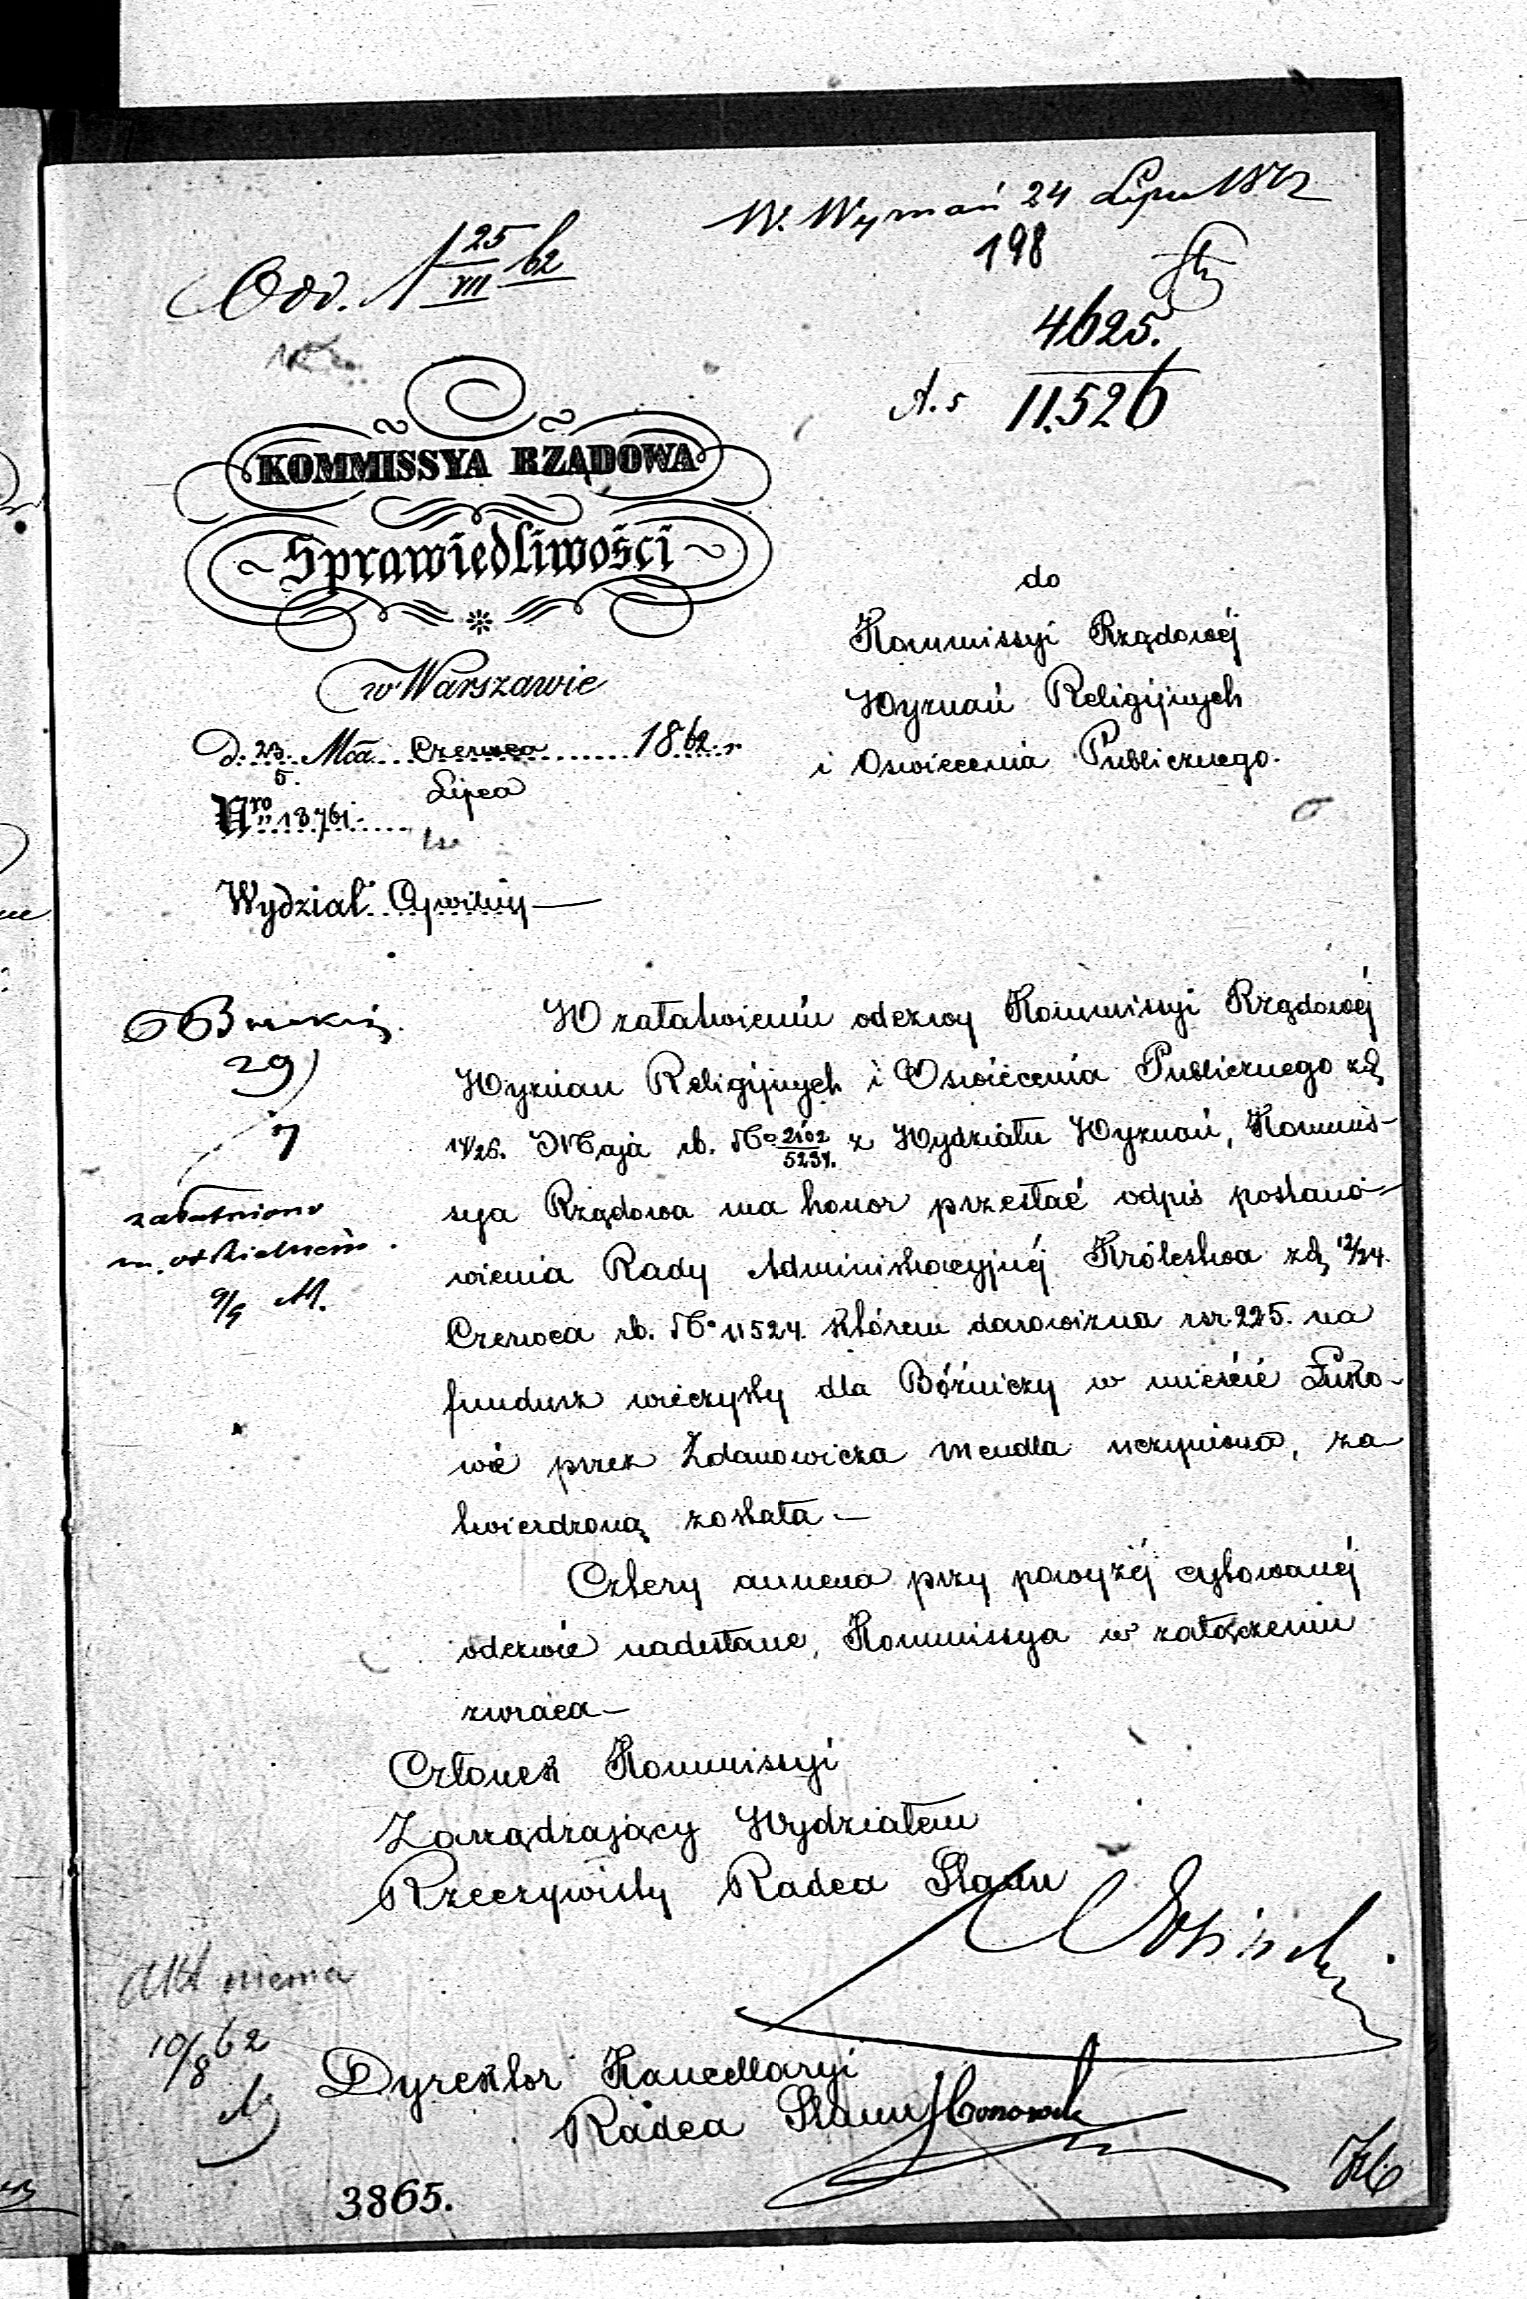 W. Wyznań 24 Lipca 1862
198
25
VII 62
4625.
11.526
KOMMISSYA RZĄDOWA
Sprawiedliwości
w Warszawie
d. 23. Mca Czerwca 1862 r.
5. Lipca
Nro 13761
Wydział Cywilny
do
Kommissyi Rządowéj
Wyznań Religijnych
i Oswiecenia Publicznego.
29
7
załatwiono
9/9 M.
W załatwieniu odezwy Kommissyi Rządowéj
Wyznan Religijnych i Oswiécenia Publicznego z d.
14/26. Maja rb. No 2102/5234. z Wydziału Wyznań, Kommis-
sya Rządowa ma honor przesłać odpis postano-
wienia Rady Administracyjnéj Królestwa z d. 12/24.
Czerwca rb. No 11524. którem darowizna rsr. 225. na
fundusz wieczysty dla Bóżniczy w mieście Łuko-
wie przez Zdanowicza Mendla uczyniona, za
twierdzoną została —
Cztery annexa przy powyżéj cytowanéj
odezwie nadesłane, Kommissya w załączeniu
zwraca —
Członek Kommissyi
Zarządzający Wydziałem
Rzeczywisty Radca Stanu
Akt niema
10/8 62
Dyrektor Kancellaryi
Radca Stanu
3865.